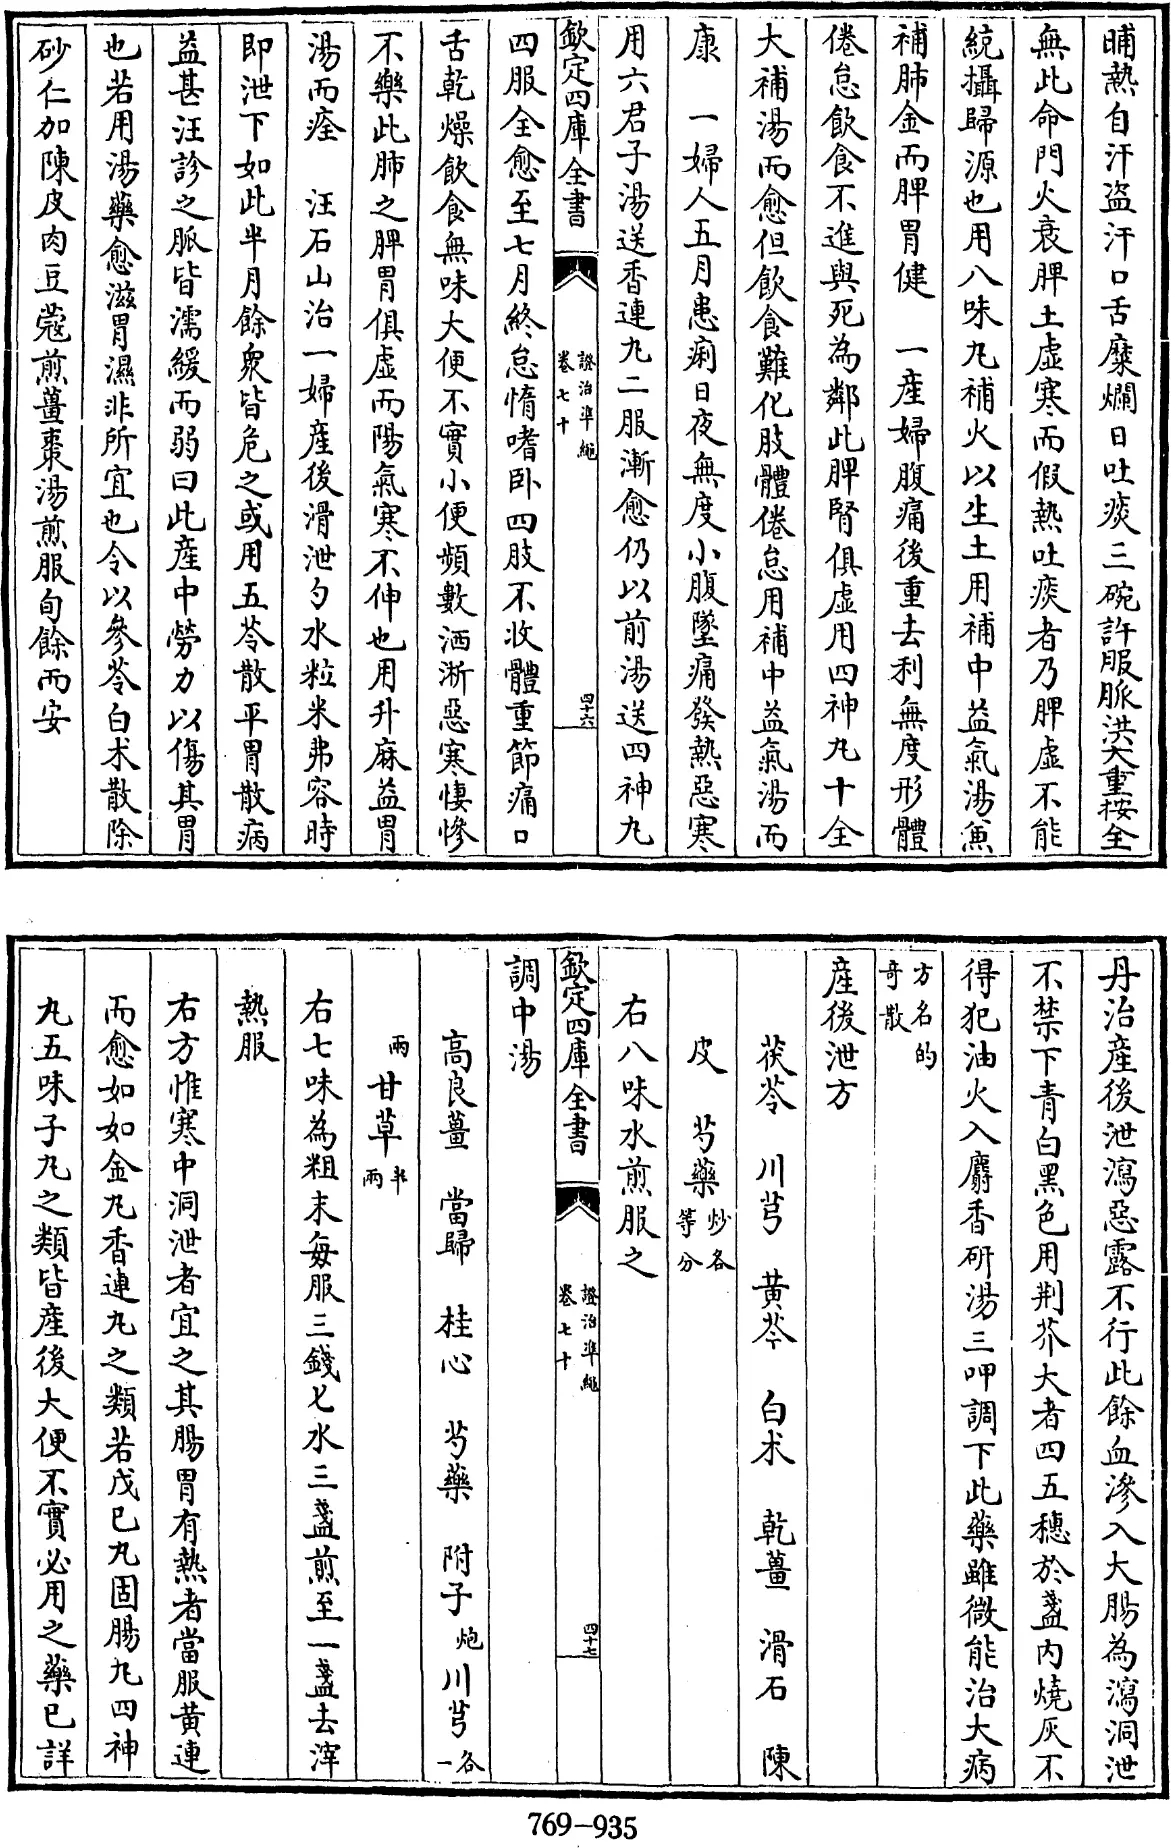 晡熱自汗盗汗口舌糜爛日吐痰三碗許服脈洪大重按全
無此命門火衰脾土虚寒而假熱吐痰者乃脾虚不能
統攝歸源也用八味丸補火以生土用補中益氣湯兼
補肺金而脾胃健　一産婦腹痛後重去利無度形體
倦怠飲食不進與死為鄰此脾腎俱虚用四神丸十全
大補湯而愈但飲食難化肢體倦怠用補中益氣湯而
康　一婦人五月患痢日夜無度小腹墜痛發熱惡寒
用六君子湯送香連丸二服漸愈仍以前湯送四神丸
欽定四庫全書
證治準繩
卷七十
四十六
四服全愈至七月終怠惰嗜卧四肢不收體重節痛口
舌乾燥飲食無味大便不實小便頻數洒淅惡寒悽慘
不樂此肺之脾胃俱虚而陽氣寒不伸也用升麻益胃
湯而痊　汪石山治一婦産後滑泄勺水粒米弗容時
即泄下如此半月餘衆皆危之或用五苓散平胃散病
益甚汪診之脈皆濡緩而弱曰此産中勞力以傷其胃
也若用湯藥愈滋胃濕非所宜也令以參苓白术散除
砂仁加陳皮肉豆蔻煎薑棗湯煎服旬餘而安
丹治産後泄瀉惡露不行此餘血滲入大腸為瀉洞泄
不禁下青白黑色用荆芥大者四五穗於盞内燒灰不
得犯油火入麝香研湯三呷調下此藥雖微能治大病
方名的
奇散
産後泄方
茯苓　川芎　黄芩　白术　乾薑　滑石　陳
皮　芍藥炒各等分
右八味水煎服之
欽定四庫全書
證治準繩
卷七十
四十七
調中湯
高良薑　當歸　桂心　芍藥　附子炮川芎各一
兩甘草半兩
右七味為粗末每服三錢匕水三盞煎至一盞去滓
熱服
右方惟寒中洞泄者宜之其腸胃有熱者當服黄連
而愈如如金丸香連丸之類若戊已丸固腸丸四神
丸五味子丸之類皆産後大便不實必用之藥已詳
769-935